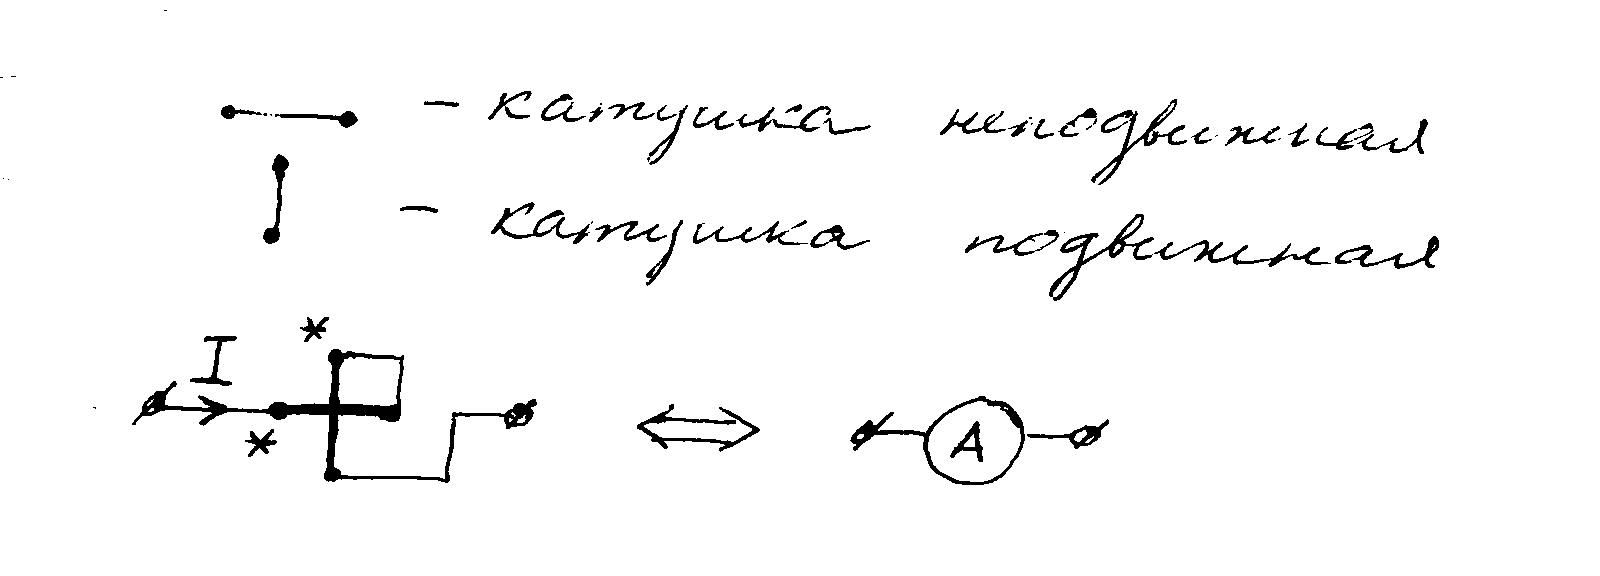 - катушка неподвижная
- катушка подвижная
*
I
*
A